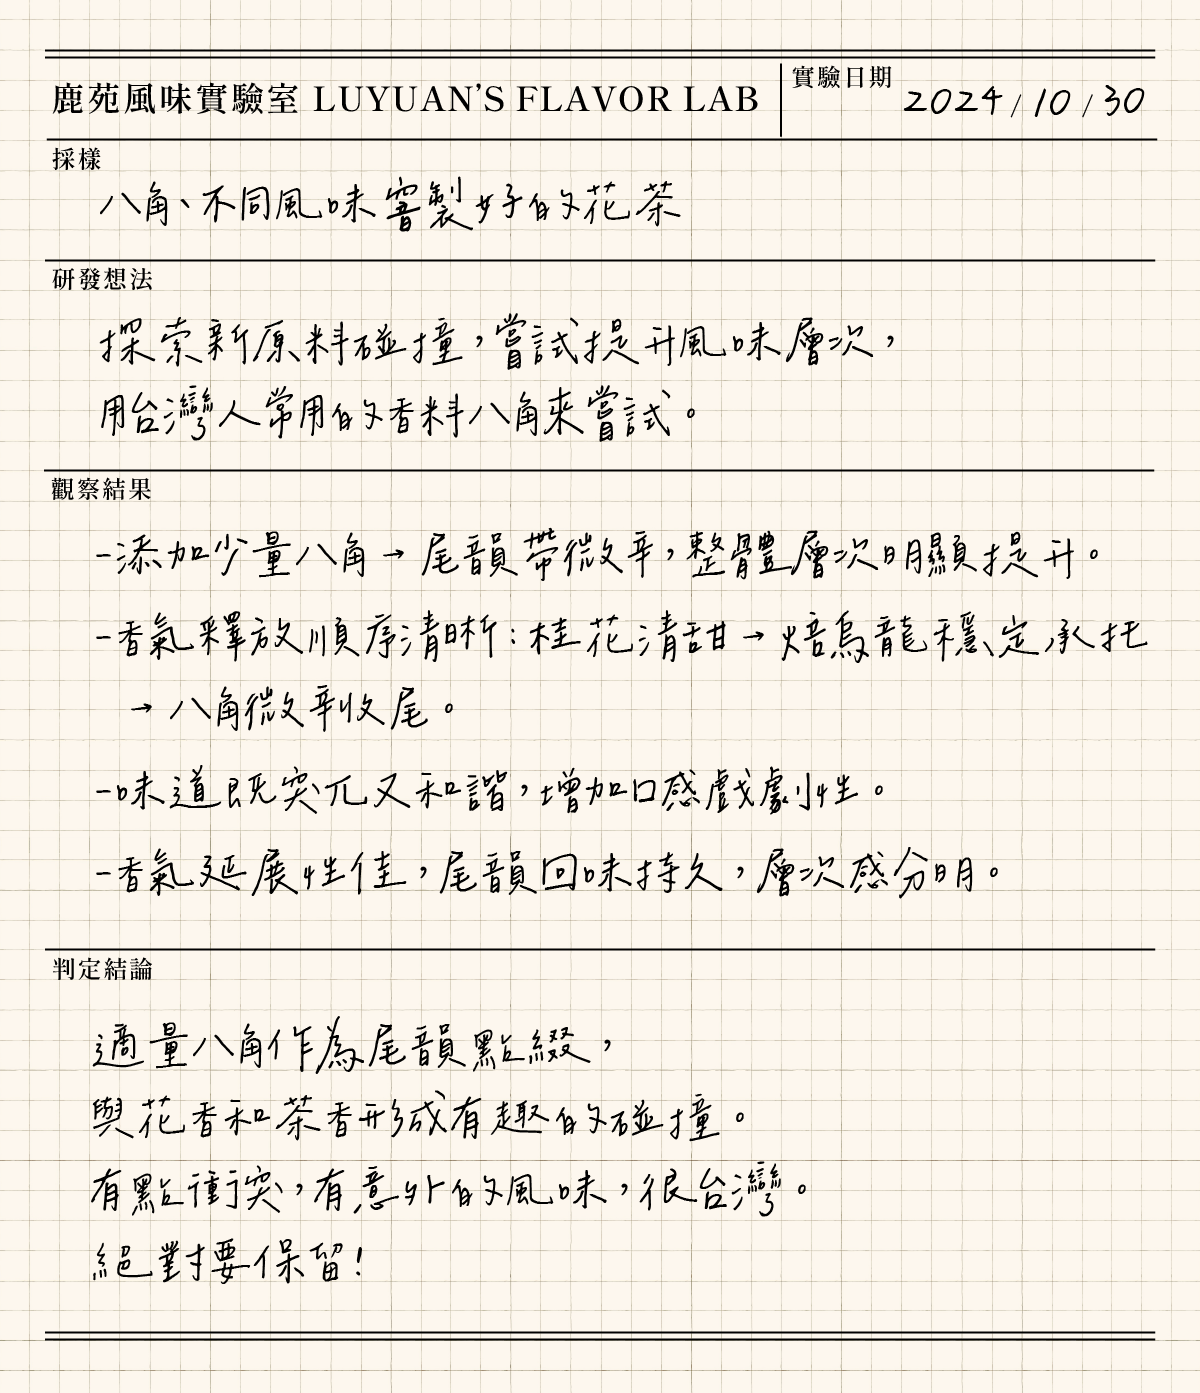 鹿苑風味實驗室 LUYUAN'S FLAVOR LAB
實驗日期 2024/10/30
採樣
八角、不同風味窨製好的花茶
研發想法
探索新原料碰撞,嘗試提升風味層次,
用台灣人常用的香料八角來嘗試。
觀察結果
-添加少量八角→尾韻帶微辛,整體層次明顯提升。
-香氣釋放順序清晰:桂花清甜→焙烏龍穩定承托
→八角微辛收尾。
-味道既突兀又和諧,增加口感戲劇性。
-香氣延展性佳,尾韻回味持久,層次感分明。
判定結論
適量八角作為尾韻點綴,
與花香和茶香形成有趣的碰撞。
有點衝突,有意外的風味,很台灣。
絕對要保留!